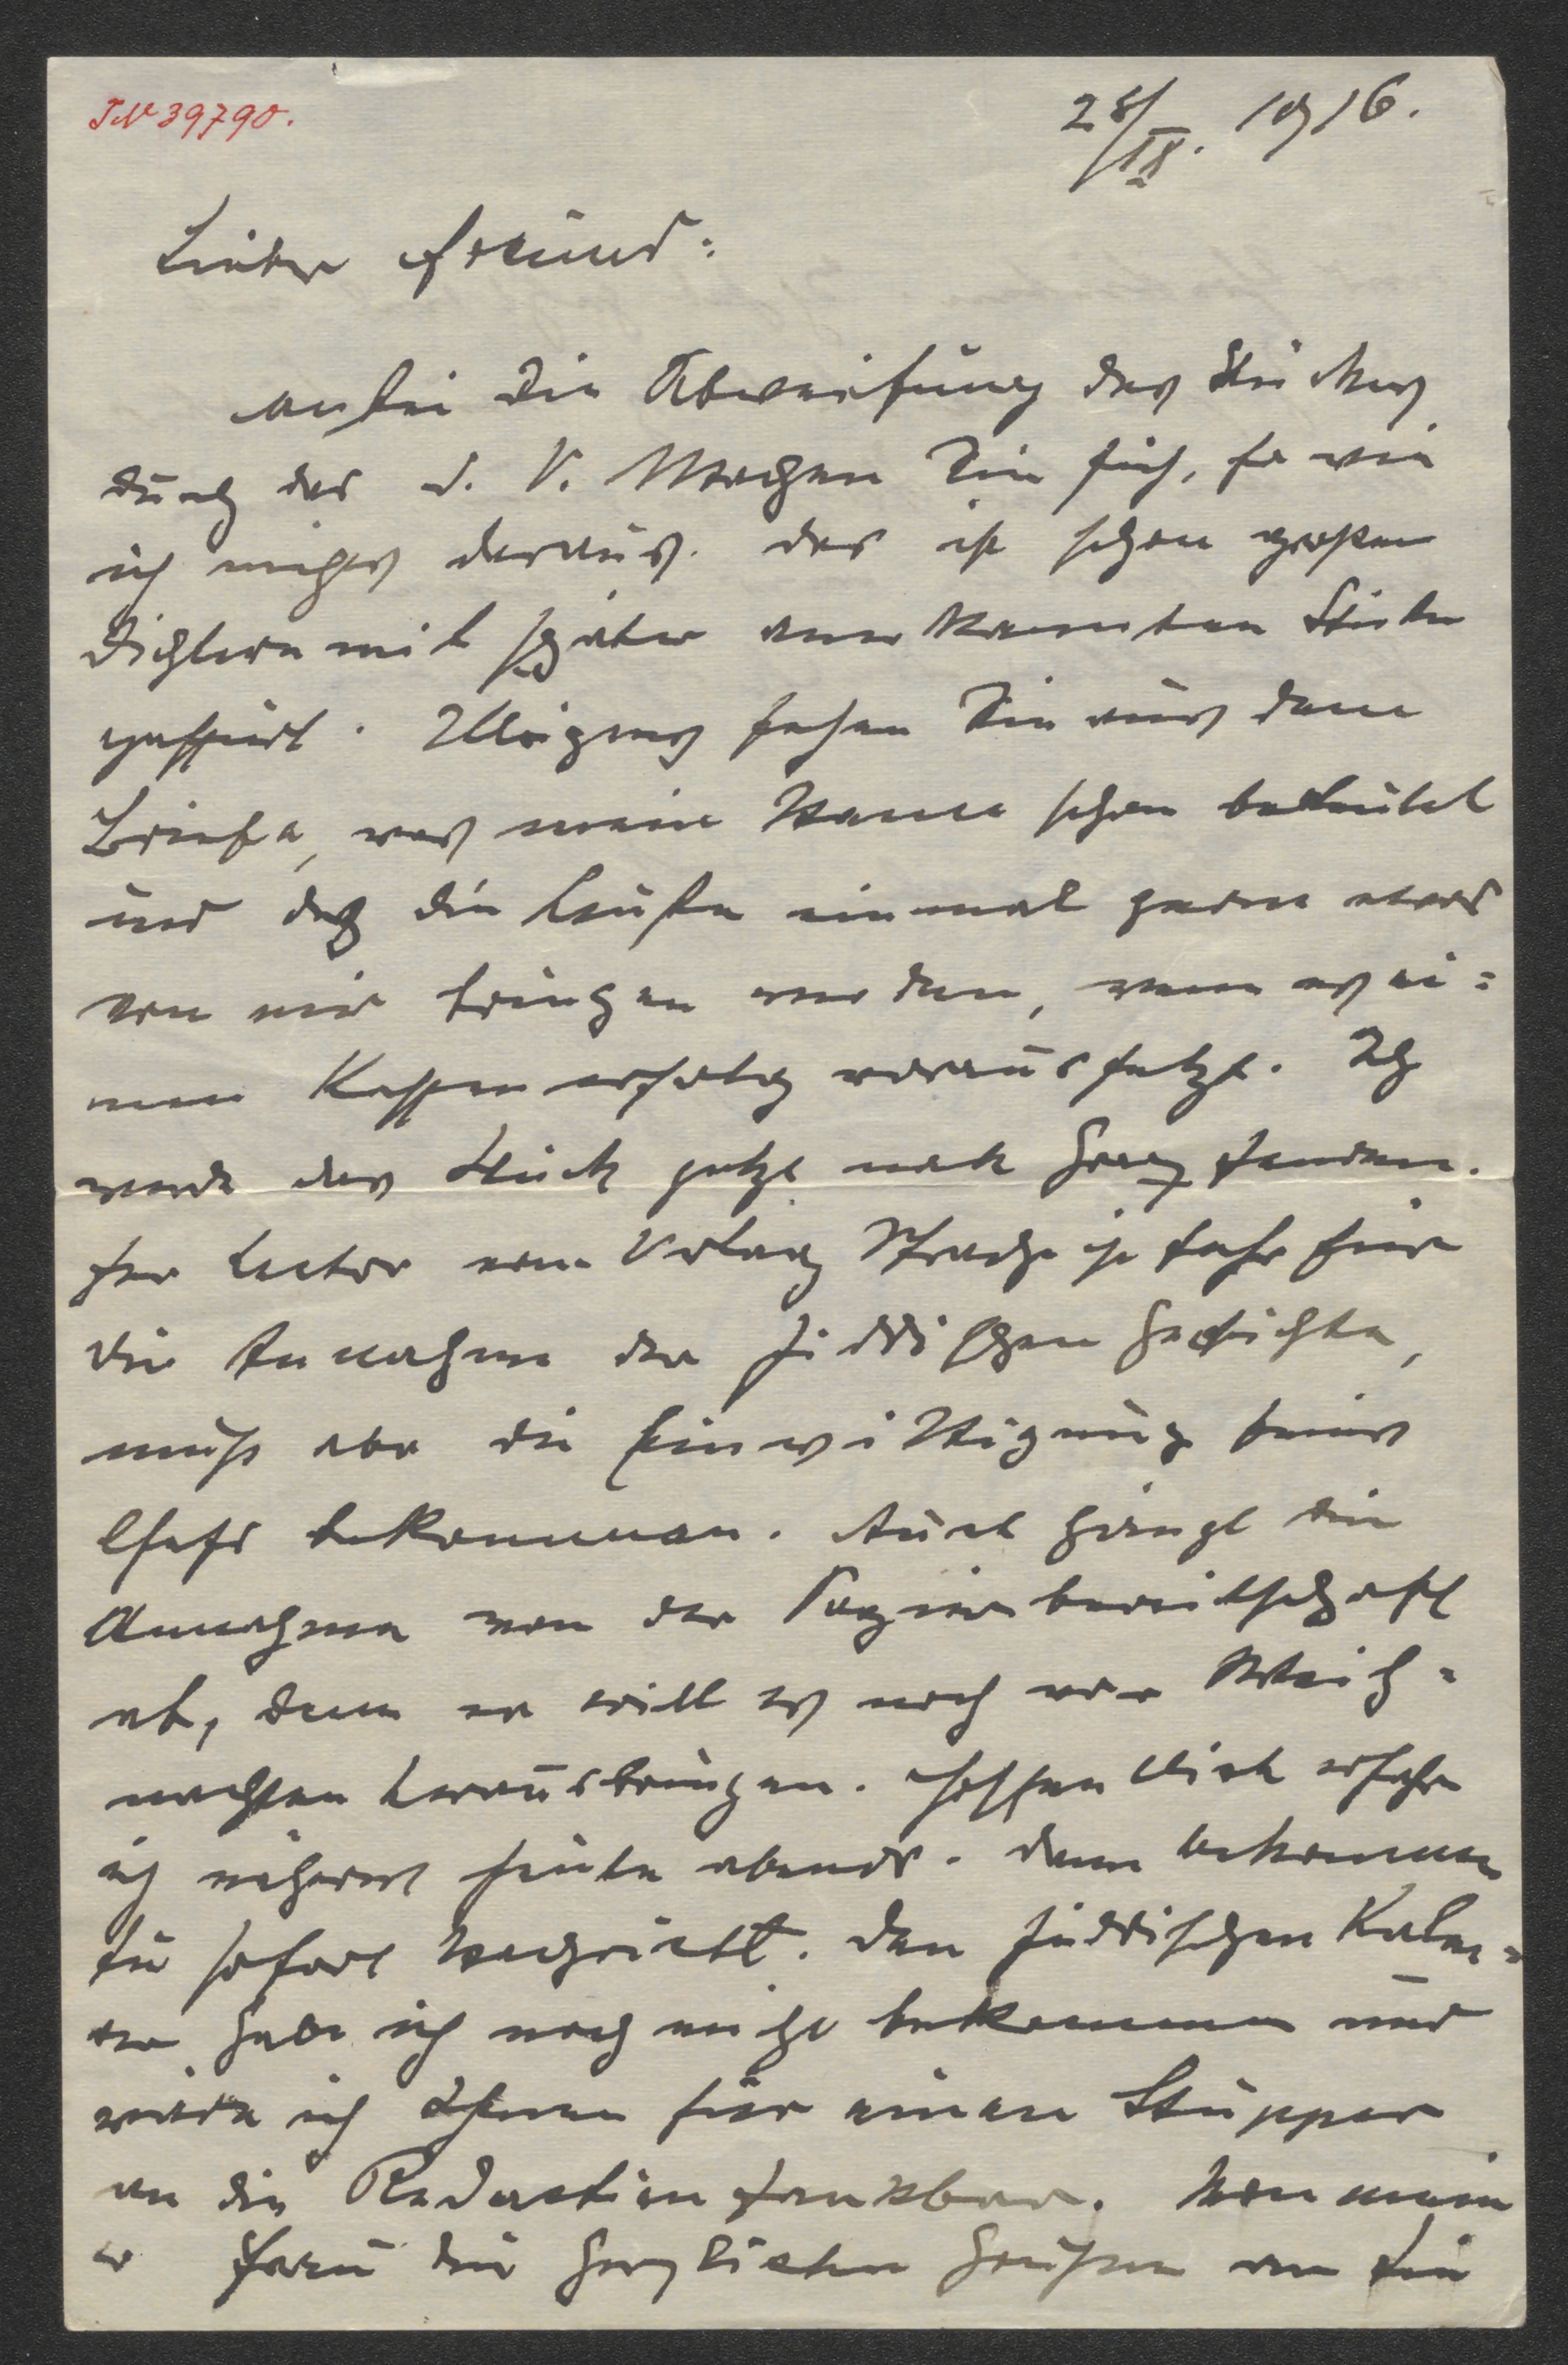 IN 39790.
28/IX. 1916.
Lieber Freund:
anbei die Abweisung des Stückes
durch das d. V. Machen Sie sich, so wie
ich nichts daraus. das ist schon großen
Dichtern mit später anerkannten Stücken
passiert. Übrigens sehen Sie aus dem
Briefe, was mein Name schon bedeutet
und daß die Leute einmal gerne etwas
von mir bringen werden, wenn es ei=
nen Kassenerfolg voraussetzt. Ich
werde das Stück jetzt nach Graz senden.
Der Lector vom Verlag Strache ist sehr für
die Annahme der jiddischen Gedichte,
muß aber die Einwilligung seines
Chefs bekommen. Auch hängt die
Annahme von der Papierbereitschaft
ab, denn er will es noch vor Weih=
nachten herausbringen. Hoffentlich erfahre
ich näheres heute abends. Dann bekommen
Sie sofort Nachricht. Den jüdischen Kalen=
der habe ich noch nicht bekommen und
wäre ich Ihnen für einen Stupper
an die Redaction dankbar. Von mein
er Frau die herzlichsten Grüßen an Sie